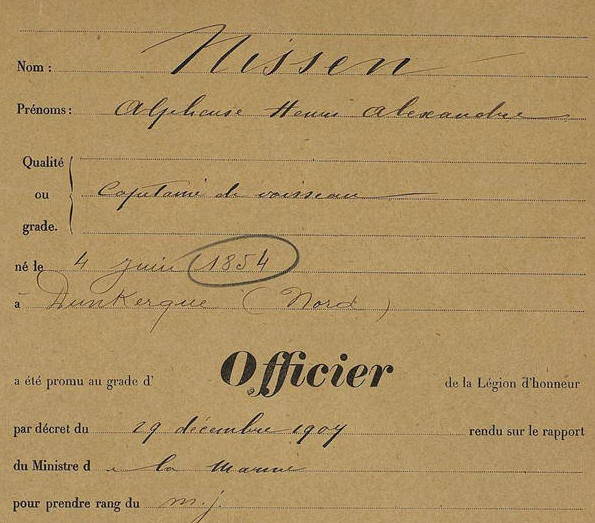 Nom : Nissen
Prénoms : Alphonse Henri Alexandre
Qualité
ou Capitaine de vaisseau
grade.
né le 4 Juin 1854
à Dunkerque (Nord)
a été promu au grade d' Officier de la Légion d'honneur
par décret du 29 décembre 1907 rendu sur le rapport
du Ministre de la Marine
pour prendre rang du m. j.